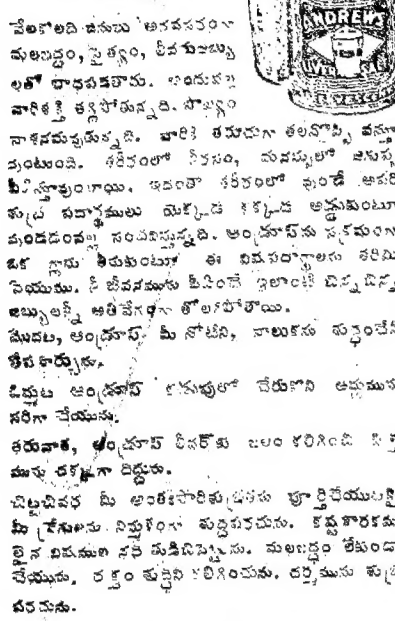 ANDREWS
LIVER
వేలకొలది జనులు అనవసరంగా
మలబద్ధం, పైత్యం, లీవరుజబ్బు
లతో బాధపడతారు. అందువల్ల
వారిశక్తి తగ్గిపోతున్నది. సౌఖ్యం
నాశనమవుతున్నది. వారికి తరుచుగా తలనొప్పి వస్తూ
వుంటుంది. శరీరంలో నీరసం, మనస్సులో
ఇదంతా శరీరంలో వుండే అపరి
శుభ్ర పదార్థములు యెక్కడ కక్కడ అడ్డుకుంటూ
వుండడంవల్ల సంభవిస్తున్నది. ఆండ్రూస్‌ను సక్రమంగా
ఒక గ్లాసు తీసుకుంటూ ఈ విషపదార్థాలను తరిమి
వేయును. మీ జీవనమును ఇలాంటి చిన్న చిన్న
జబ్బులన్నీ అతివేగంగా తొలగిపోతాయి.
మొదట, ఆండ్రూస్ మీ నోటిని, నాలుకను శుభ్రంచేసి
ఓమ్మట ఆండ్రూస్ కడుపులో చేరుకొని
సరిగా చేయును.
తరువాత, ఆండ్రూస్ లీవర్‌కు బలం కలిగించి పిత్త
మును చక్కగా దిద్దును.
చిట్టచివర మీ అంతఃపరిశుభ్రతను పూర్తిచేయుటకై
మీ ప్రేగులను శుద్ధపరచును. కష్టకారకము
లైన విషముల నన్ని తుడిచిపెట్టును. మలబద్ధం లేకుండా
చేయును. రక్తం శుద్ధిని కలిగించును. చర్మమును శుభ్ర
పరచును.